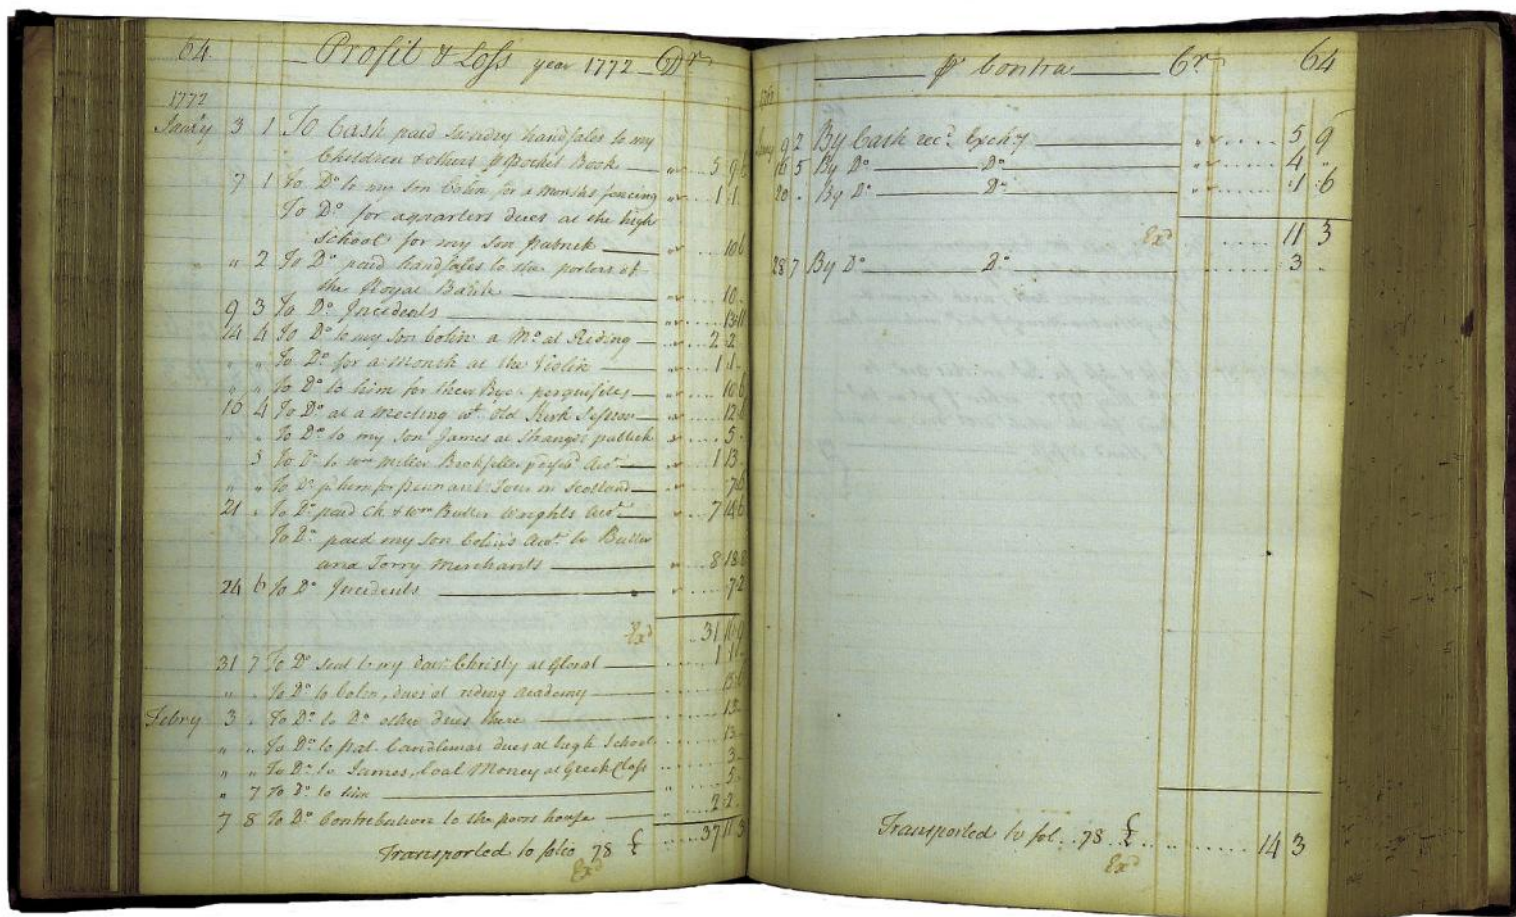 64 Profit & Loss year 1772 Dr
1772
Janry 3 1 To Cash paid sundry handsales to my
Children & others p Pocket Book 5 9 6
7 1 To Do to my son Colin for a months fencing 1 1
To Do for a quarters dues at the high
School for my son Patrick 10 6
" 2 To Do paid handsales to the porters of
the Royal Bank 10
9 3 To Do Incidents 13 11
14 4 To Do to my son Colin a Mo at Riding 2 2
" " To Do for a Month at the Violin 1 1
" " To Do to him for their Bye perquisites 10 6
16 4 To Do at a Meeting wt Old Kirk Session 12
" " To Do to my son James at Stranges publick 5
3 To Do to Wm Miller Bookseller Acot 1 13
" " To Do p him for Pennant Tour in Scotland 7 6
21 " To Do paid Ch & Wm Butter Wrights Acot 7 6
To Do paid my son Colin's Acot to Butter
and Torry Merchants 8 18 8
24 6 To Do Incidents 7 2
Exd 31 16 9
31 7 To Do sent to my daur Christy at 1 1
" " To Do to Colin, dues at riding academy
Febry 3 " To Do to Do other dues there 13
" " To Do to Pat. Candlemas dues at high School 13
" " To Do to James, Coal Money at Greek Class 3
" 7 To Do to him 5
7 8 To Do Contribution to the poors house 2 2
Transported to folio 78 £ 37 11 3
Exd
p Contra Cr 64
Janry 9 2 By Cash recd Exchy 5 9
16 5 By Do Do 4 "
20 " By Do Do 1 6
Exd 11 3
28 7 By Do Do 3 "
Transported to fol. 78 £ 14 3
Exd